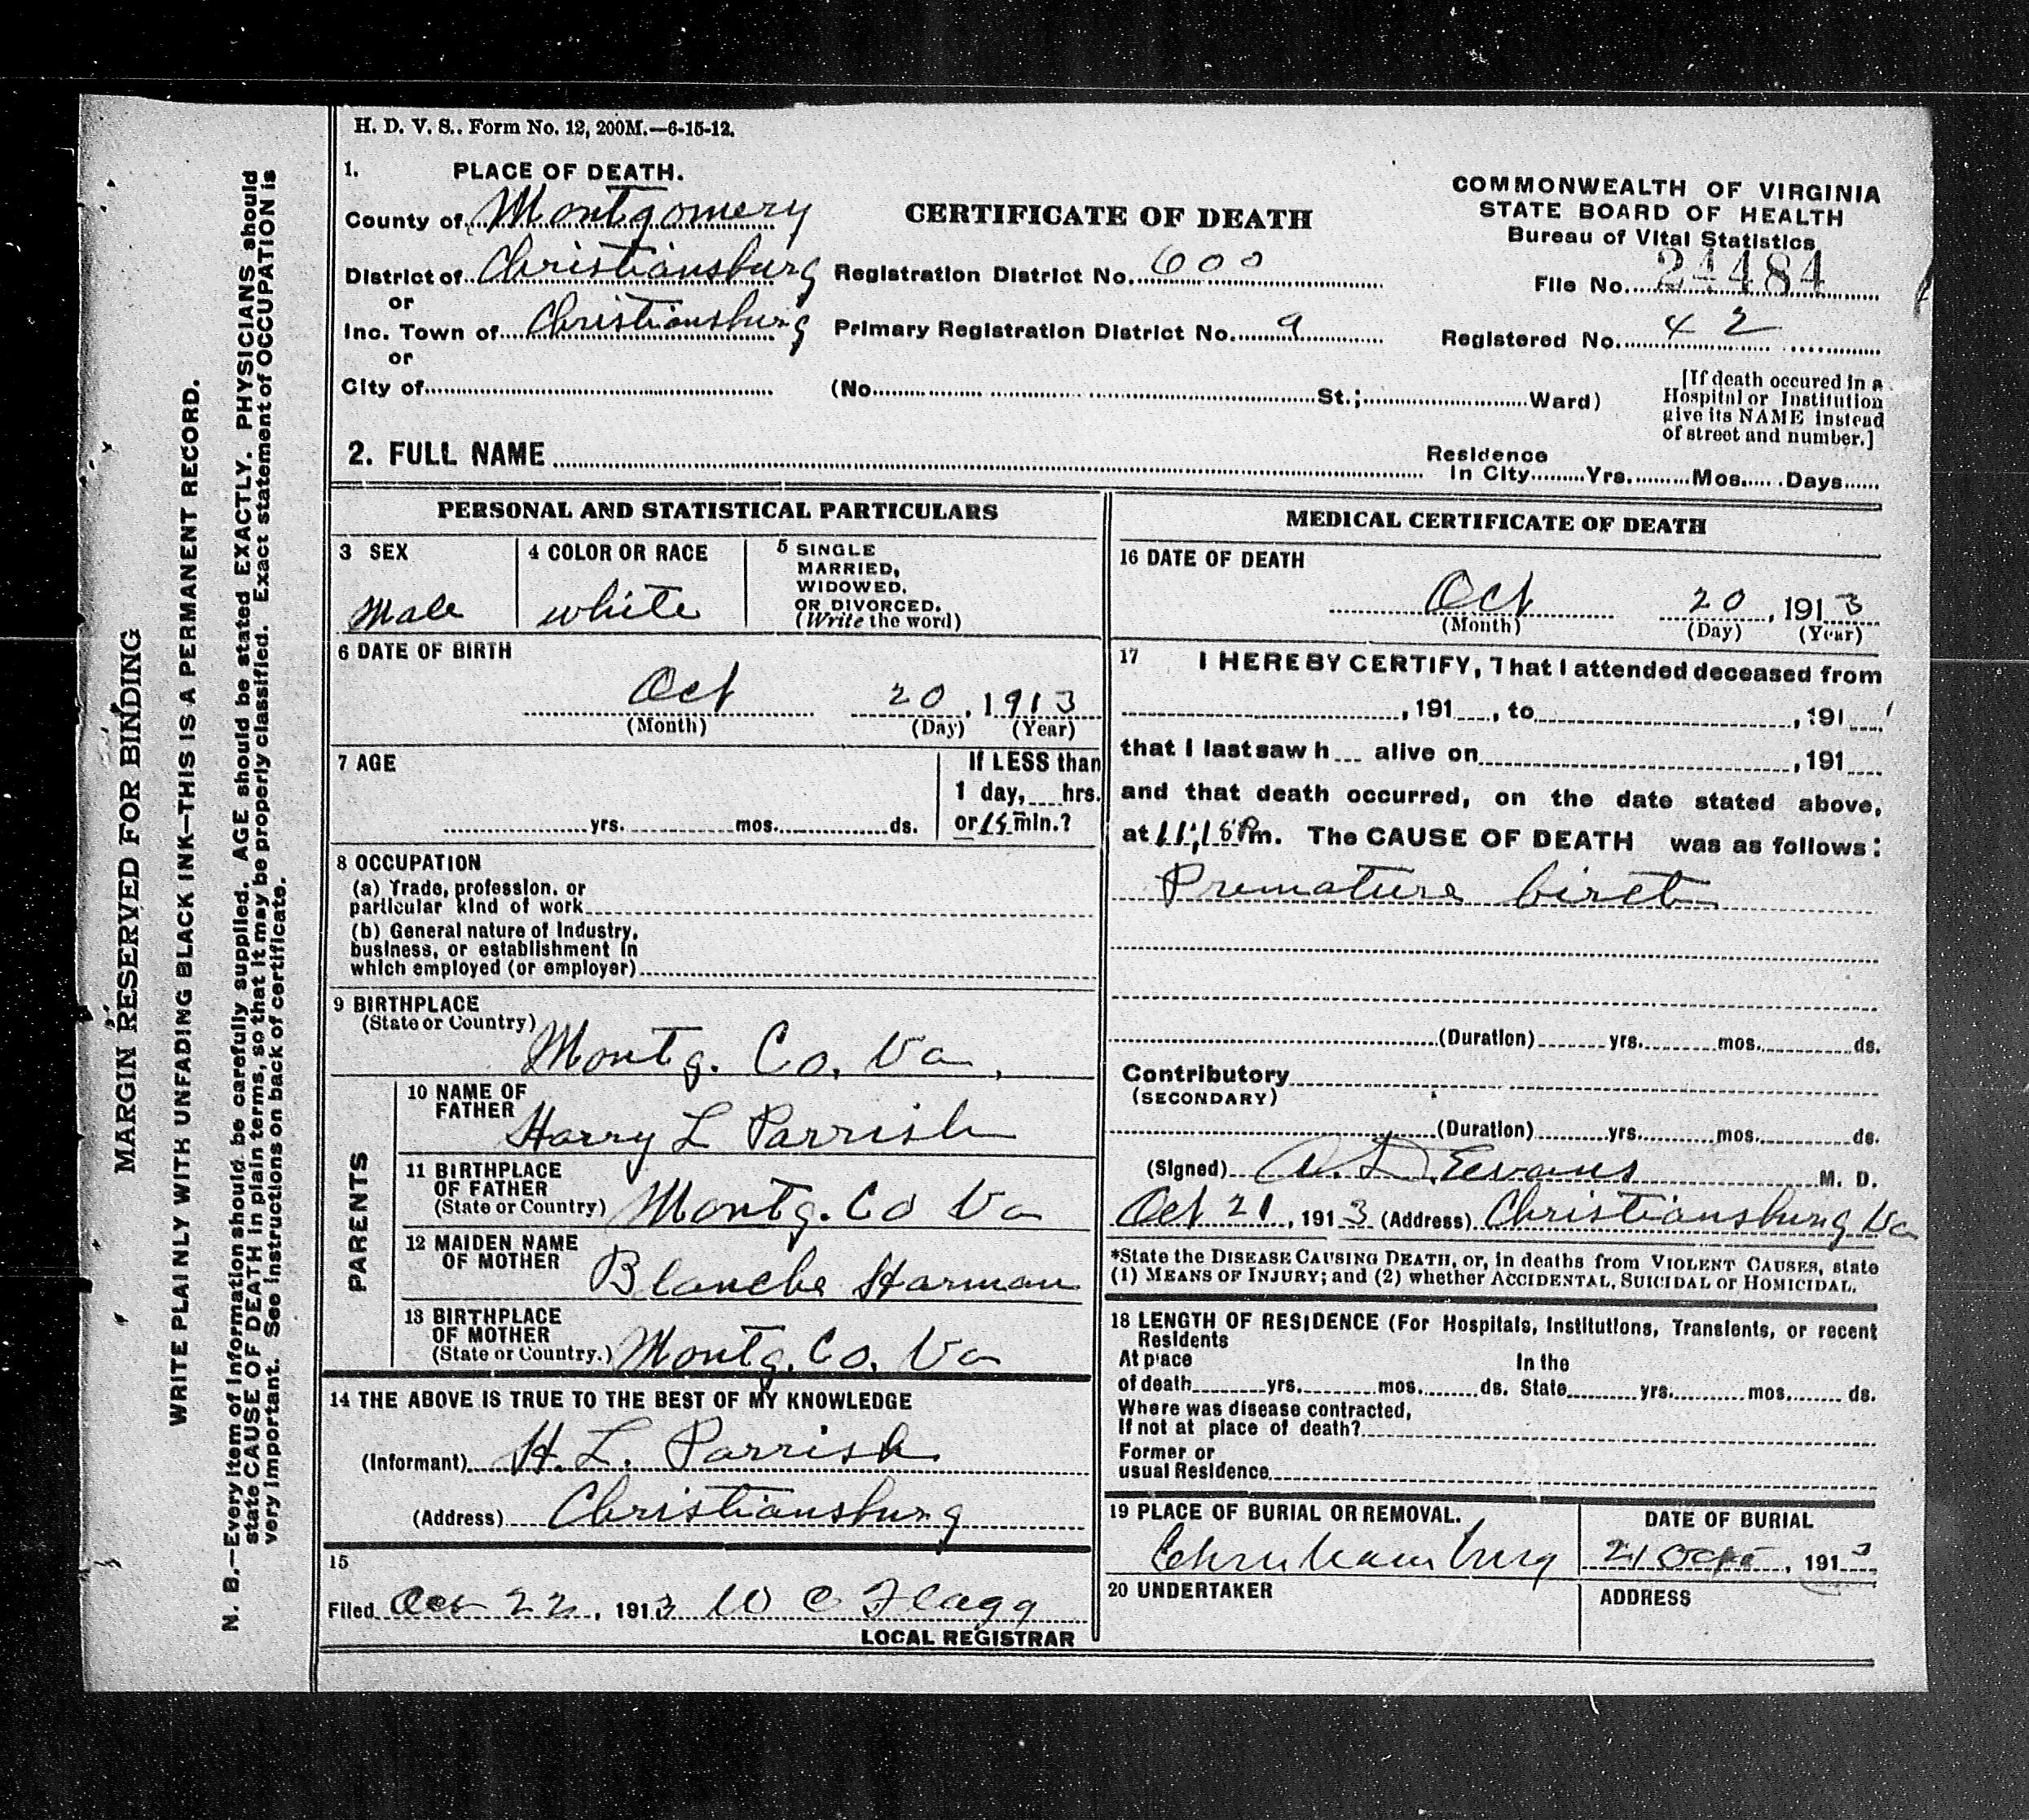 H. D. V. S.. Form No. 12, 200M.—6-15-12.
1. PLACE OF DEATH.
County of Montgomery
District of Christiansburg
or
Inc. Town of Christiansburg
or
City of
CERTIFICATE OF DEATH
Registration District No. 600
Primary Registration District No. 9
(No. St.; Ward)
COMMONWEALTH OF VIRGINIA
STATE BOARD OF HEALTH
Bureau of Vital Statistics
File No. 24484
Registered No. 42
[If death occured in a
Hospital or Institution
give its NAME instead
of street and number.]
2. FULL NAME
Residence
In City Yrs. Mos. Days
PERSONAL AND STATISTICAL PARTICULARS
3 SEX
Male
4 COLOR OR RACE
white
5 SINGLE
MARRIED,
WIDOWED,
OR DIVORCED.
(Write the word)
6 DATE OF BIRTH
Oct 20, 1913
(Month) (Day) (Year)
7 AGE
yrs. mos. ds.
If LESS than
1 day, hrs.
or 15 min.?
8 OCCUPATION
(a) Trade, profession, or
particular kind of work
(b) General nature of Industry,
business, or establishment in
which employed (or employer)
9 BIRTHPLACE
(State or Country)
Montg. Co. Va.
PARENTS
10 NAME OF
FATHER
Harry L Parrish
11 BIRTHPLACE
OF FATHER
(State or Country) Montg. Co Va
12 MAIDEN NAME
OF MOTHER
Blanche Harman
13 BIRTHPLACE
OF MOTHER
(State or Country.) Montg. Co. Va
14 THE ABOVE IS TRUE TO THE BEST OF MY KNOWLEDGE
(Informant) H. L. Parrish
(Address) Christiansburg
15
Filed Oct 22, 1913 W C Flagg
LOCAL REGISTRAR
MEDICAL CERTIFICATE OF DEATH
16 DATE OF DEATH
Oct 20, 1913
(Month) (Day) (Year)
17 I HEREBY CERTIFY, That I attended deceased from
, 191 , to , 191
that I last saw h alive on , 191
and that death occurred, on the date stated above,
at 11:15 Pm. The CAUSE OF DEATH was as follows:
Premature birth
(Duration) yrs. mos. ds.
Contributory
(SECONDARY)
(Duration) yrs. mos. ds.
(Signed) Evans M. D.
Oct 21, 1913 (Address) Christiansburg Va
*State the DISEASE CAUSING DEATH, or, in deaths from VIOLENT CAUSES, state
(1) MEANS OF INJURY; and (2) whether ACCIDENTAL, SUICIDAL or HOMICIDAL.
18 LENGTH OF RESIDENCE (For Hospitals, Institutions, Transients, or recent
Residents
At place In the
of death yrs. mos. ds. State yrs. mos. ds.
Where was disease contracted,
If not at place of death?
Former or
usual Residence
19 PLACE OF BURIAL OR REMOVAL.
Christiansburg
DATE OF BURIAL
21 Oct, 1913
20 UNDERTAKER
ADDRESS
MARGIN RESERVED FOR BINDING
WRITE PLAINLY WITH UNFADING BLACK INK—THIS IS A PERMANENT RECORD.
N. B.—Every item of information should be carefully supplied. AGE should be stated EXACTLY. PHYSICIANS should
state CAUSE OF DEATH in plain terms, so that it may be properly classified. Exact statement of OCCUPATION is
very important. See instructions on back of certificate.